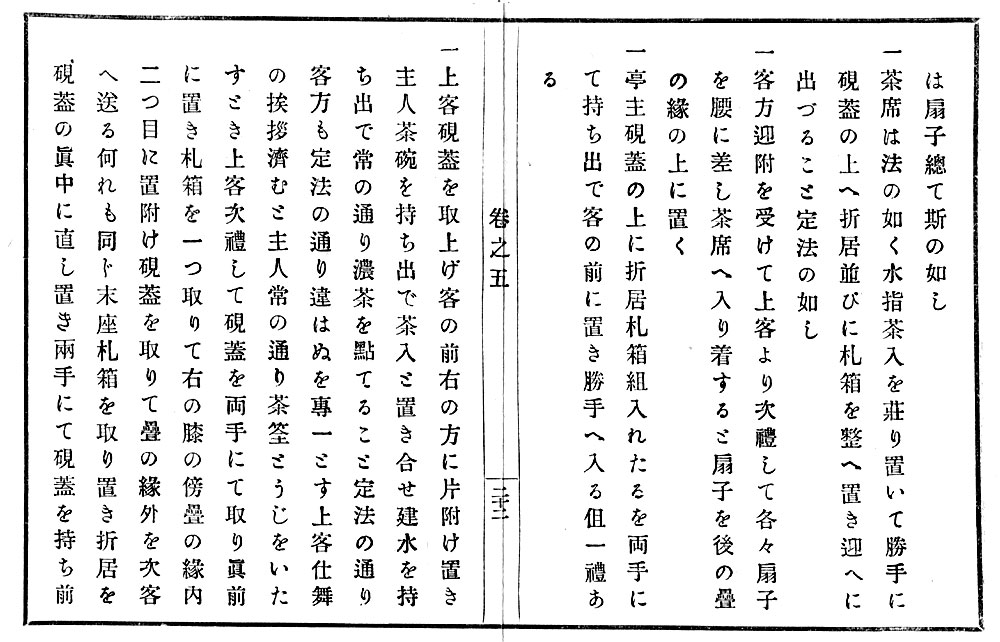 は扇子總て斯の如し
一茶席は法の如く水指茶入を莊り置いて勝手に
硯葢の上へ折居並びに札箱を整へ置き迎へに
出づること定法の如し
一客方迎附を受けて上客より次禮して各々扇子
を腰に差し茶席へ入り着すると扇子を後の疊
の緣の上に置く
一亭主硯葢の上に折居札箱組入れたるを両手に
て持ち出で客の前に置き勝手へ入る伹一禮あ
る
卷之五
二十二
一上客硯葢を取上げ客の前右の方に片附け置き
主人茶碗を持ち出で茶入と置き合せ建水を持
ち出で常の通り濃茶を點てること定法の通り
客方も定法の通り違はぬを專一とす上客仕舞
の挨拶濟むと主人常の通り茶筌とうじをいた
すとき上客次禮して硯葢を両手にて取り眞前
に置き札箱を一つ取りて右の膝の傍疊の緣內
二つ目に置附け硯葢を取りて疊の緣外を次客
へ送る何れも同じ末座札箱を取り置き折居を
硯葢の眞中に直し置き兩手にて硯葢を持ち前